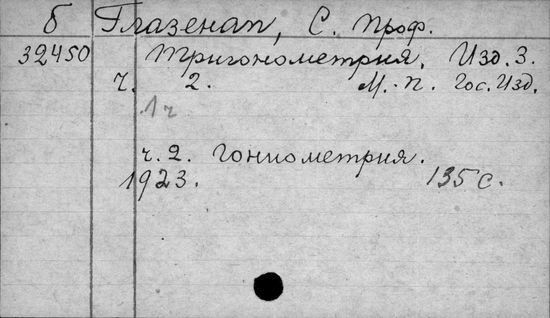 б Глазенап, С. Проф.
32450 Тригонометрия. Изд. 3.
ч. 2. М.-П. Гос. Изд.
1 ч
ч. 2. Гониометрия.
1923. 135 с.